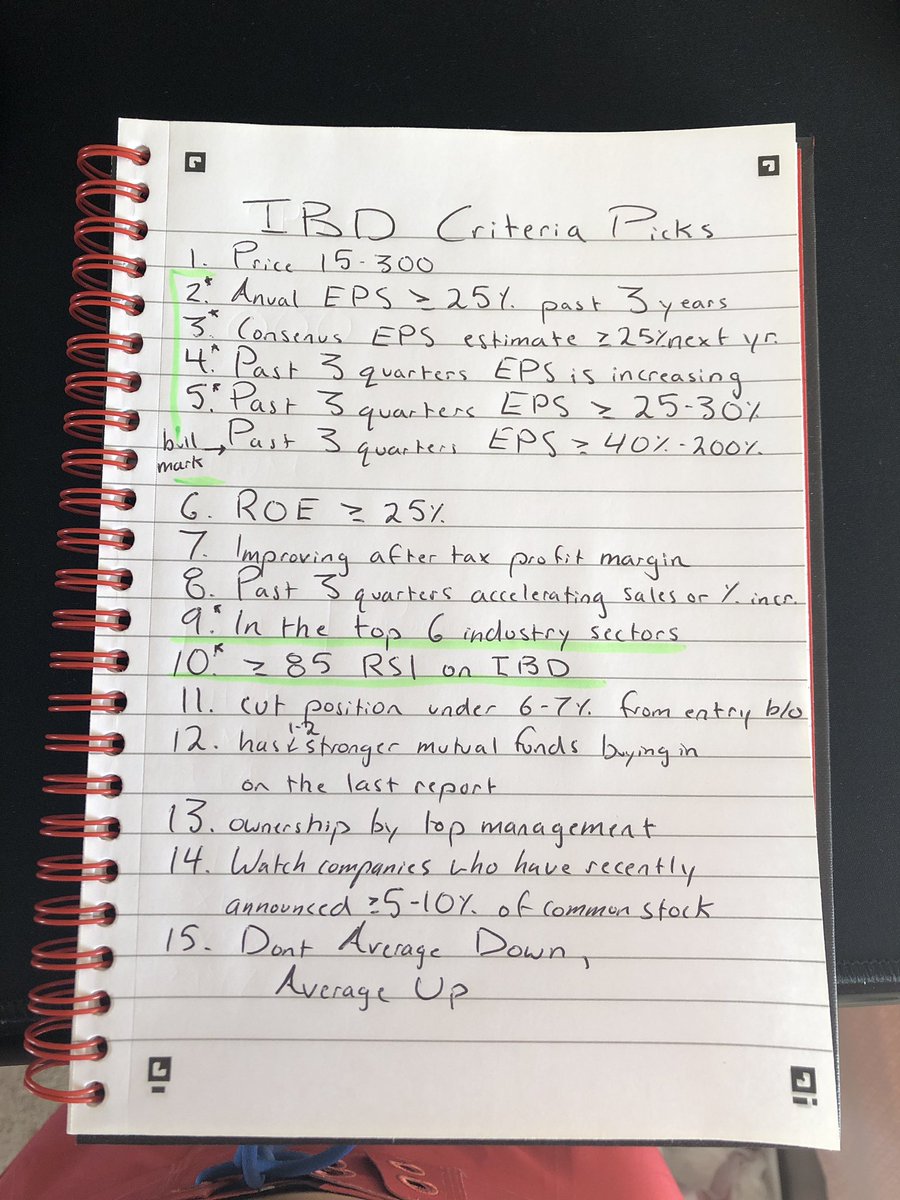 IBD Criteria Picks
1. Price 15-300
2.* Anual EPS ≥ 25% past 3 years
3.* Consenus EPS estimate ≥25% next yr.
4.* Past 3 quarters EPS is increasing
5.* Past 3 quarters EPS ≥ 25-30%
bull mark → Past 3 quarters EPS ≥ 40%-200%.
6. ROE ≥ 25%
7. Improving after tax profit margin
8. Past 3 quarters accelerating sales or % incr.
9.* In the top 6 industry sectors
10.* ≥ 85 RSI on IBD
11. cut position under 6-7% from entry b/o
12. has 1-2 stronger mutual funds buying in
on the last report
13. ownership by top management
14. Watch companies who have recently
announced ≥5-10% of common stock
15. Dont Average Down,
Average Up